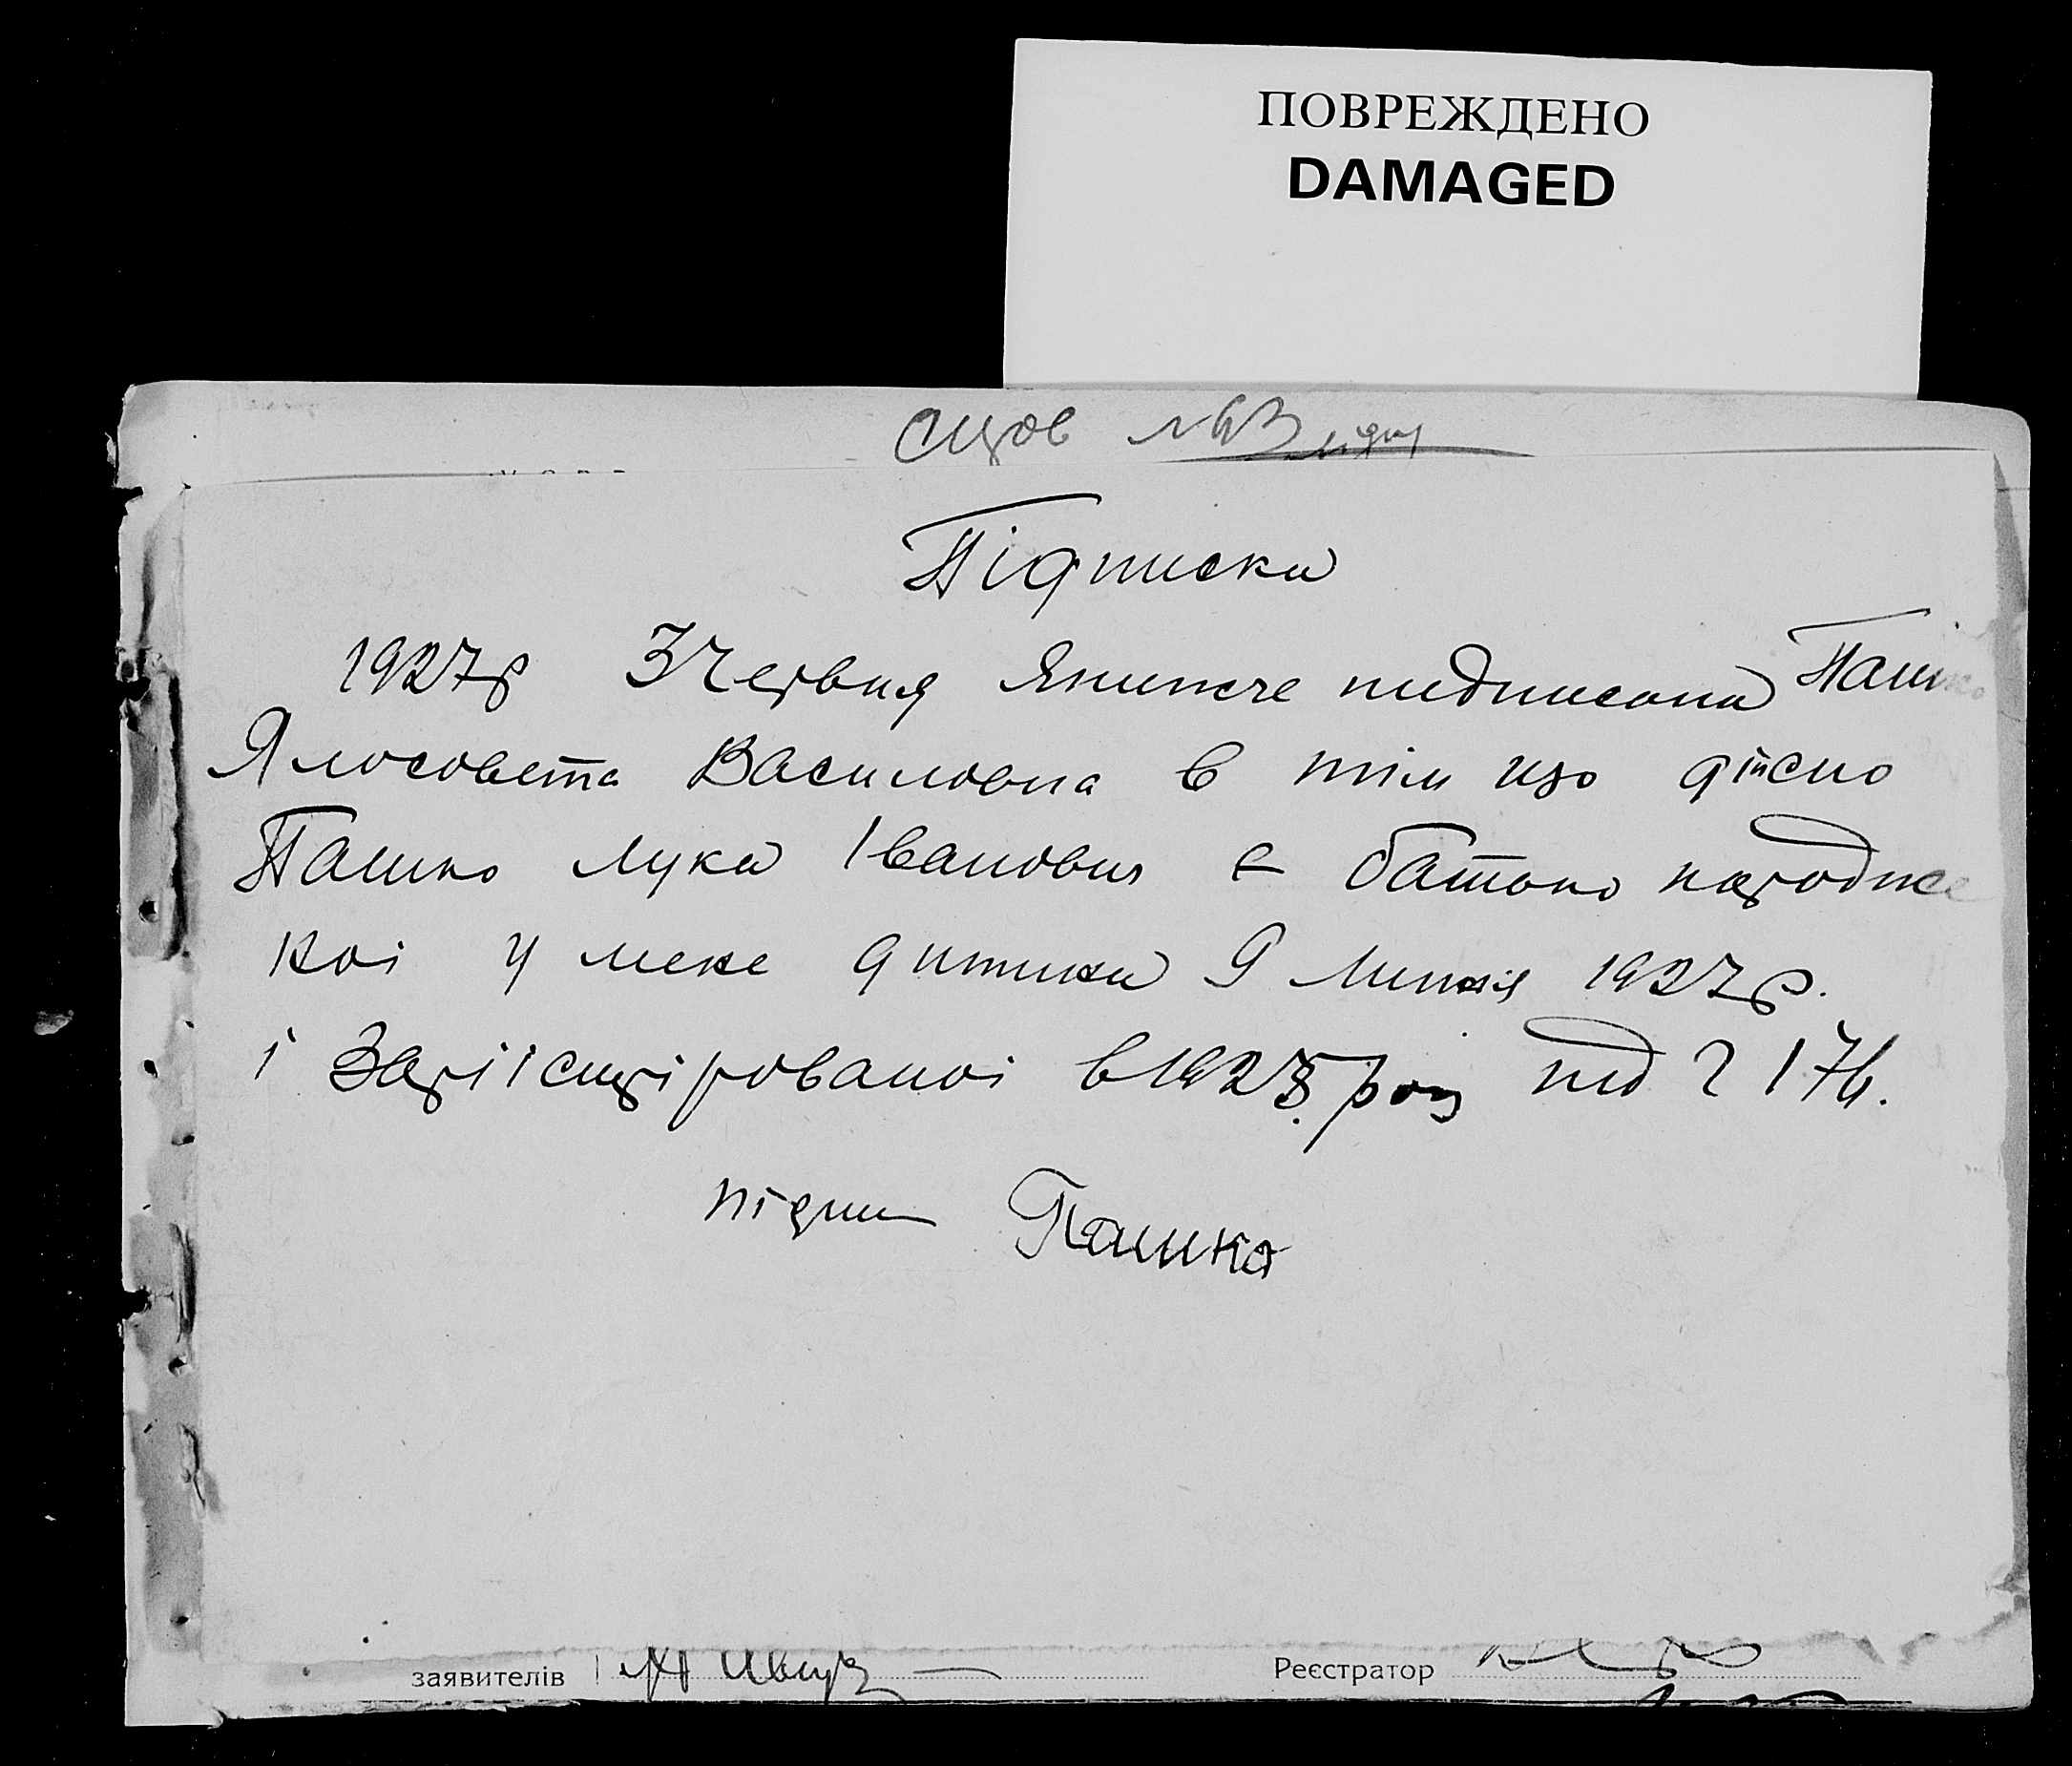 ПОВРЕЖДЕНО
DAMAGED
Підписка
1927р 3 Червня Я нижче пидписана Пашко
Ялосовета Василовна в тім що дійсно
Пашко Лука Іванович є батько народже
ної у мене дитини 9 Липня 1927р.
і Заріістрірованої в 1928 роц під 2 176.
підпи Пашко
заявителів
Реєстратор